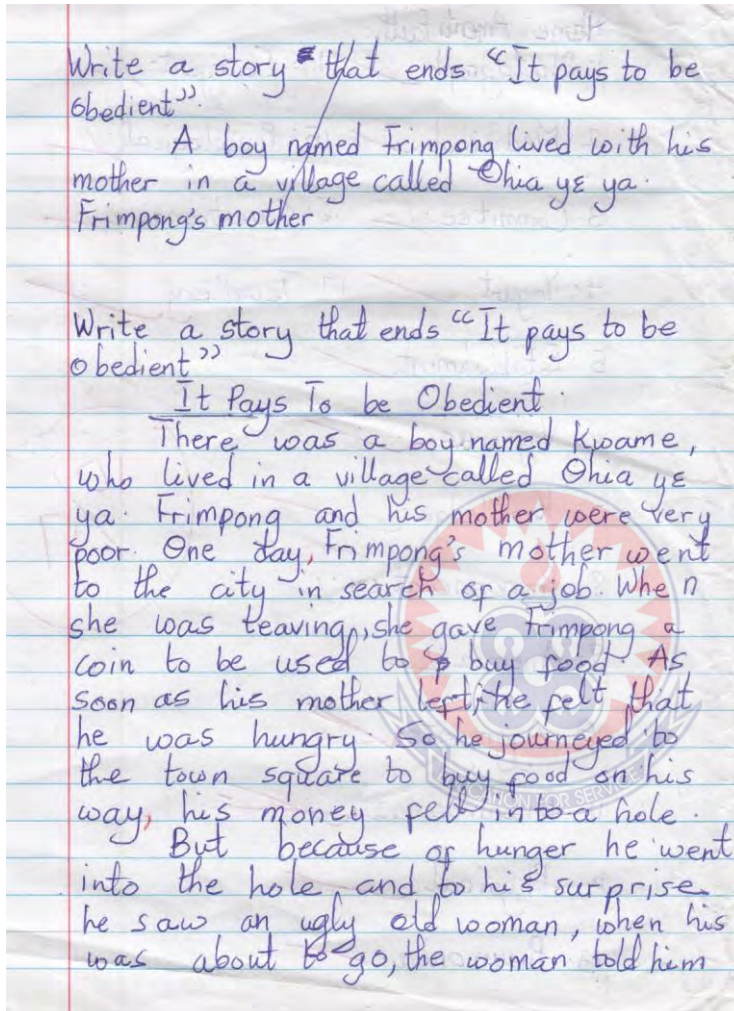 Write a story that ends "It pays to be
obedient".
A boy named Frimpong lived with his
mother in a village called Ohia yɛ ya.
Frimpong's mother
Write a story that ends "It pays to be
obedient"
It Pays To be Obedient.
There was a boy named Kwame,
who lived in a village called Ohia yɛ
ya. Frimpong and his mother were very
poor. One day, Frimpong's mother went
to the city in search of a job. When
she was leaving, she gave Frimpong a
coin to be used to buy food. As
soon as his mother left, he felt that
he was hungry. So he journeyed to
the town square to buy food on his
way, his money fell into a hole.
But because of hunger he went
into the hole and to his surprise
he saw an ugly old woman, when his
was about to go, the woman told him